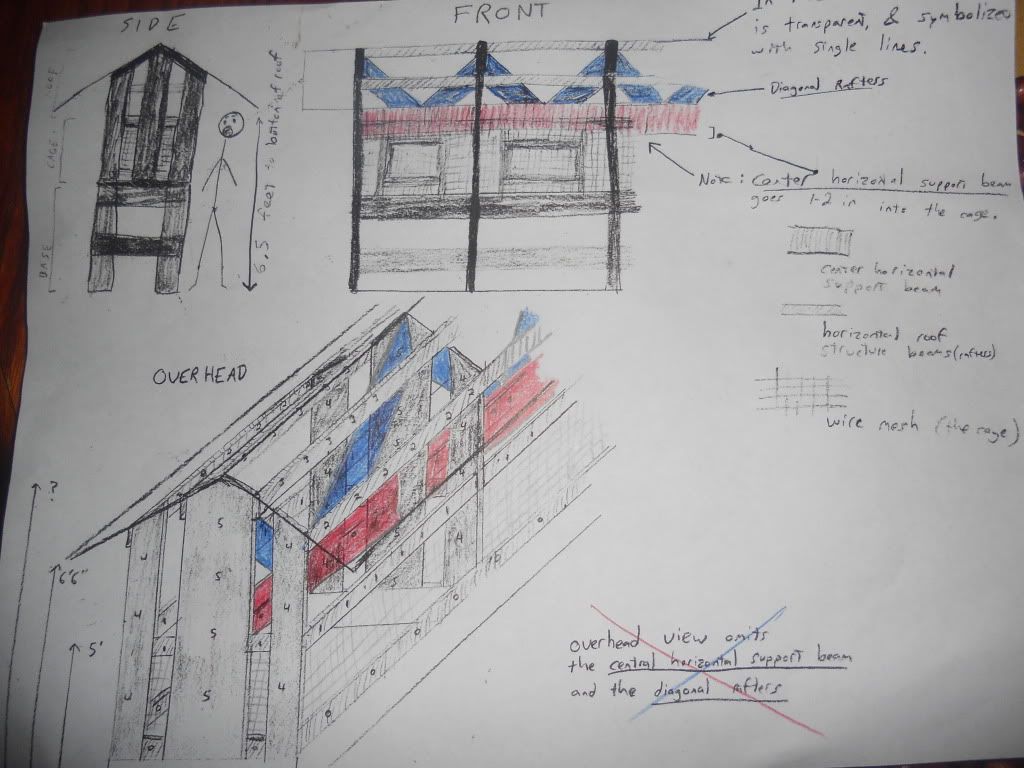 SIDE
FRONT
is transparent, & symbolized
with single lines.
Diagonal Rafters
Note: Center horizontal support beam
goes 1-2 in into the cage.
center horizontal
support beam
horizontal roof
structure beams (rafters)
wire mesh (the cage)
CAGE
BASE
6.5 feet to bottom of roof
OVERHEAD
?
6'6"
5'
overhead view omits
the central horizontal support beam
and the diagonal rafters